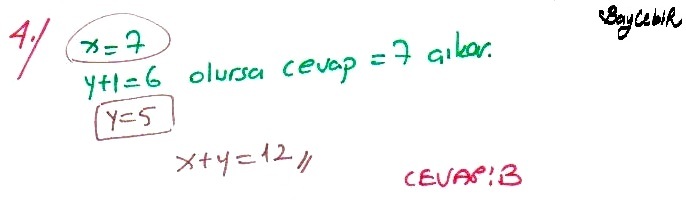 BayCebir
4-/ x=7
y+1=6 olursa cevap=7 çıkar.
y=5
x+y=12//
CEVAP:B